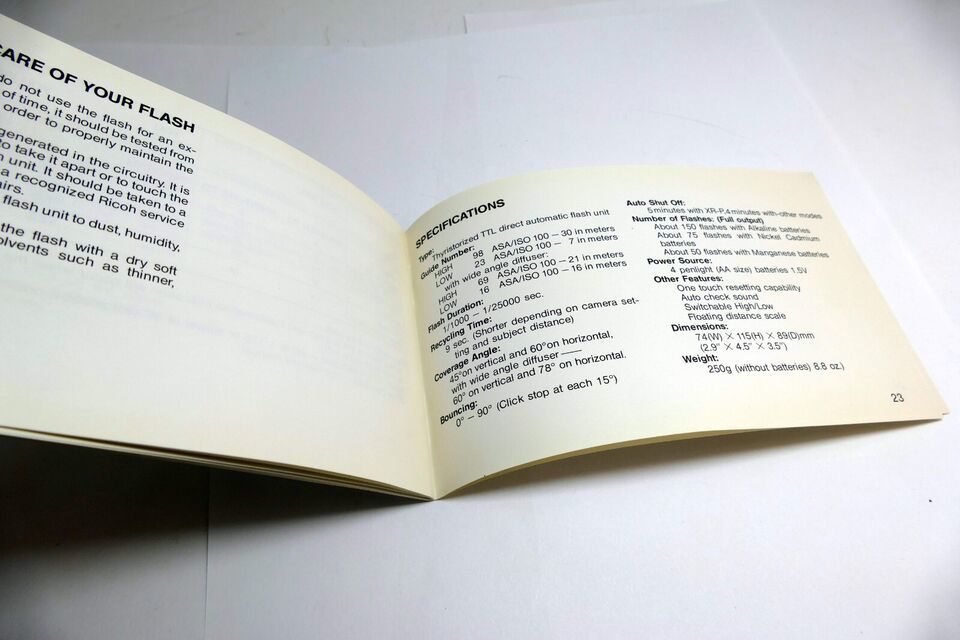 CARE OF YOUR FLASH
do not use the flash for an ex-
of time, it should be tested from
order to properly maintain the
generated in the circuitry. It is
to take it apart or to touch the
unit. It should be taken to a
a recognized Ricoh service
flash unit to dust, humidity,
the flash with a dry soft
such as thinner,
SPECIFICATIONS
Type:
Thyristorized TTL direct automatic flash unit
Guide Number:
HIGH 98 ASA/ISO 100 – 30 in meters
LOW 23 ASA/ISO 100 – 7 in meters
with wide angle diffuser:
HIGH 69 ASA/ISO 100 – 21 in meters
LOW 16 ASA/ISO 100 – 16 in meters
Flash Duration:
1/1000 – 1/25000 sec.
Recycling Time:
9 sec. (Shorter depending on camera set-
ting and subject distance)
Coverage Angle:
45° on vertical and 60° on horizontal,
with wide angle diffuser ——
60° on vertical and 78° on horizontal.
Bouncing:
0° – 90° (Click stop at each 15°)
Auto Shut Off:
5 minutes with XR-P, 4 minutes with other modes
Number of Flashes: (Full output)
About 150 flashes with Alkaline batteries
About 75 flashes with Nickel Cadmium
batteries
About 50 flashes with Manganese batteries
Power Source:
4 penlight (AA size) batteries 1.5V
Other Features:
One touch resetting capability
Auto check sound
Switchable High/Low
Floating distance scale
Dimensions:
74(W) × 115(H) × 89(D)mm
(2.9" × 4.5" × 3.5")
Weight:
250g (without batteries) 8.8 oz.)
23